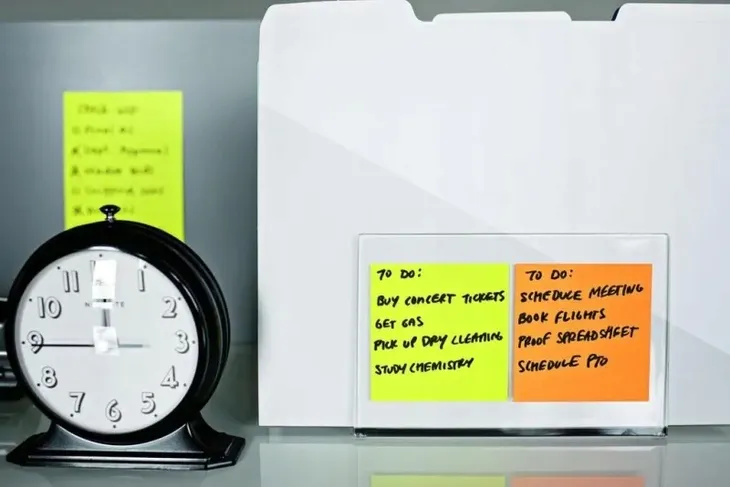 Final
Dept. Approval
11
12
1
10
2
9
3
8
4
7
6
5
TO DO:
BUY CONCERT TICKETS
GET GAS
PICK UP DRY CLEANING
STUDY CHEMISTRY
TO DO:
SCHEDULE MEETING
BOOK FLIGHTS
PROOF SPREADSHEET
SCHEDULE PTO